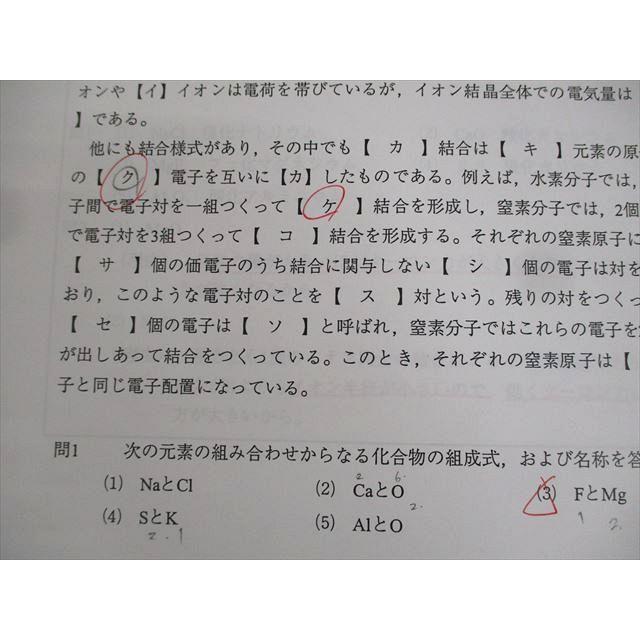 オンや【イ】イオンは電荷を帯びているが，イオン結晶全体での電気量は
】である。
他にも結合様式があり，その中でも【 カ 】結合は【 キ 】元素の原
の【 ク 】電子を互いに【カ】したものである。例えば，水素分子では，
子間で電子対を一組つくって【 ケ 】結合を形成し，窒素分子では，2個
で電子対を3組つくって【 コ 】結合を形成する。それぞれの窒素原子に
【 サ 】個の価電子のうち結合に関与しない【 シ 】個の電子は対を
おり，このような電子対のことを【 ス 】対という。残りの対をつくっ
【 セ 】個の電子は【 ソ 】と呼ばれ，窒素分子ではこれらの電子を
が出しあって結合をつくっている。このとき，それぞれの窒素原子は【
子と同じ電子配置になっている。
方が大きいから。
問1 次の元素の組み合わせからなる化合物の組成式，および名称を答
(1) NaとCl (2) CaとO (3) FとMg
2 6. 2. 1 2.
(4) SとK (5) AlとO
2. 1